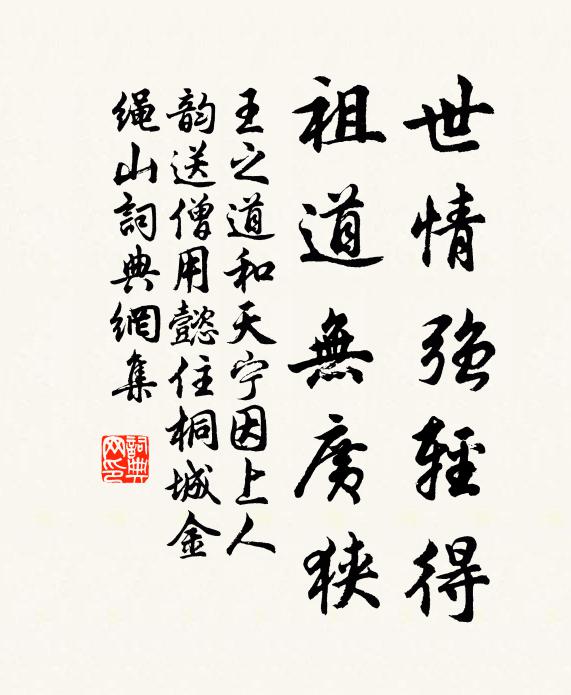 世情强輕得
祖道無廣狹
王之道和天宁因上人
韵送僧用懿住桐城金
绳山詞典網集
詞典网印